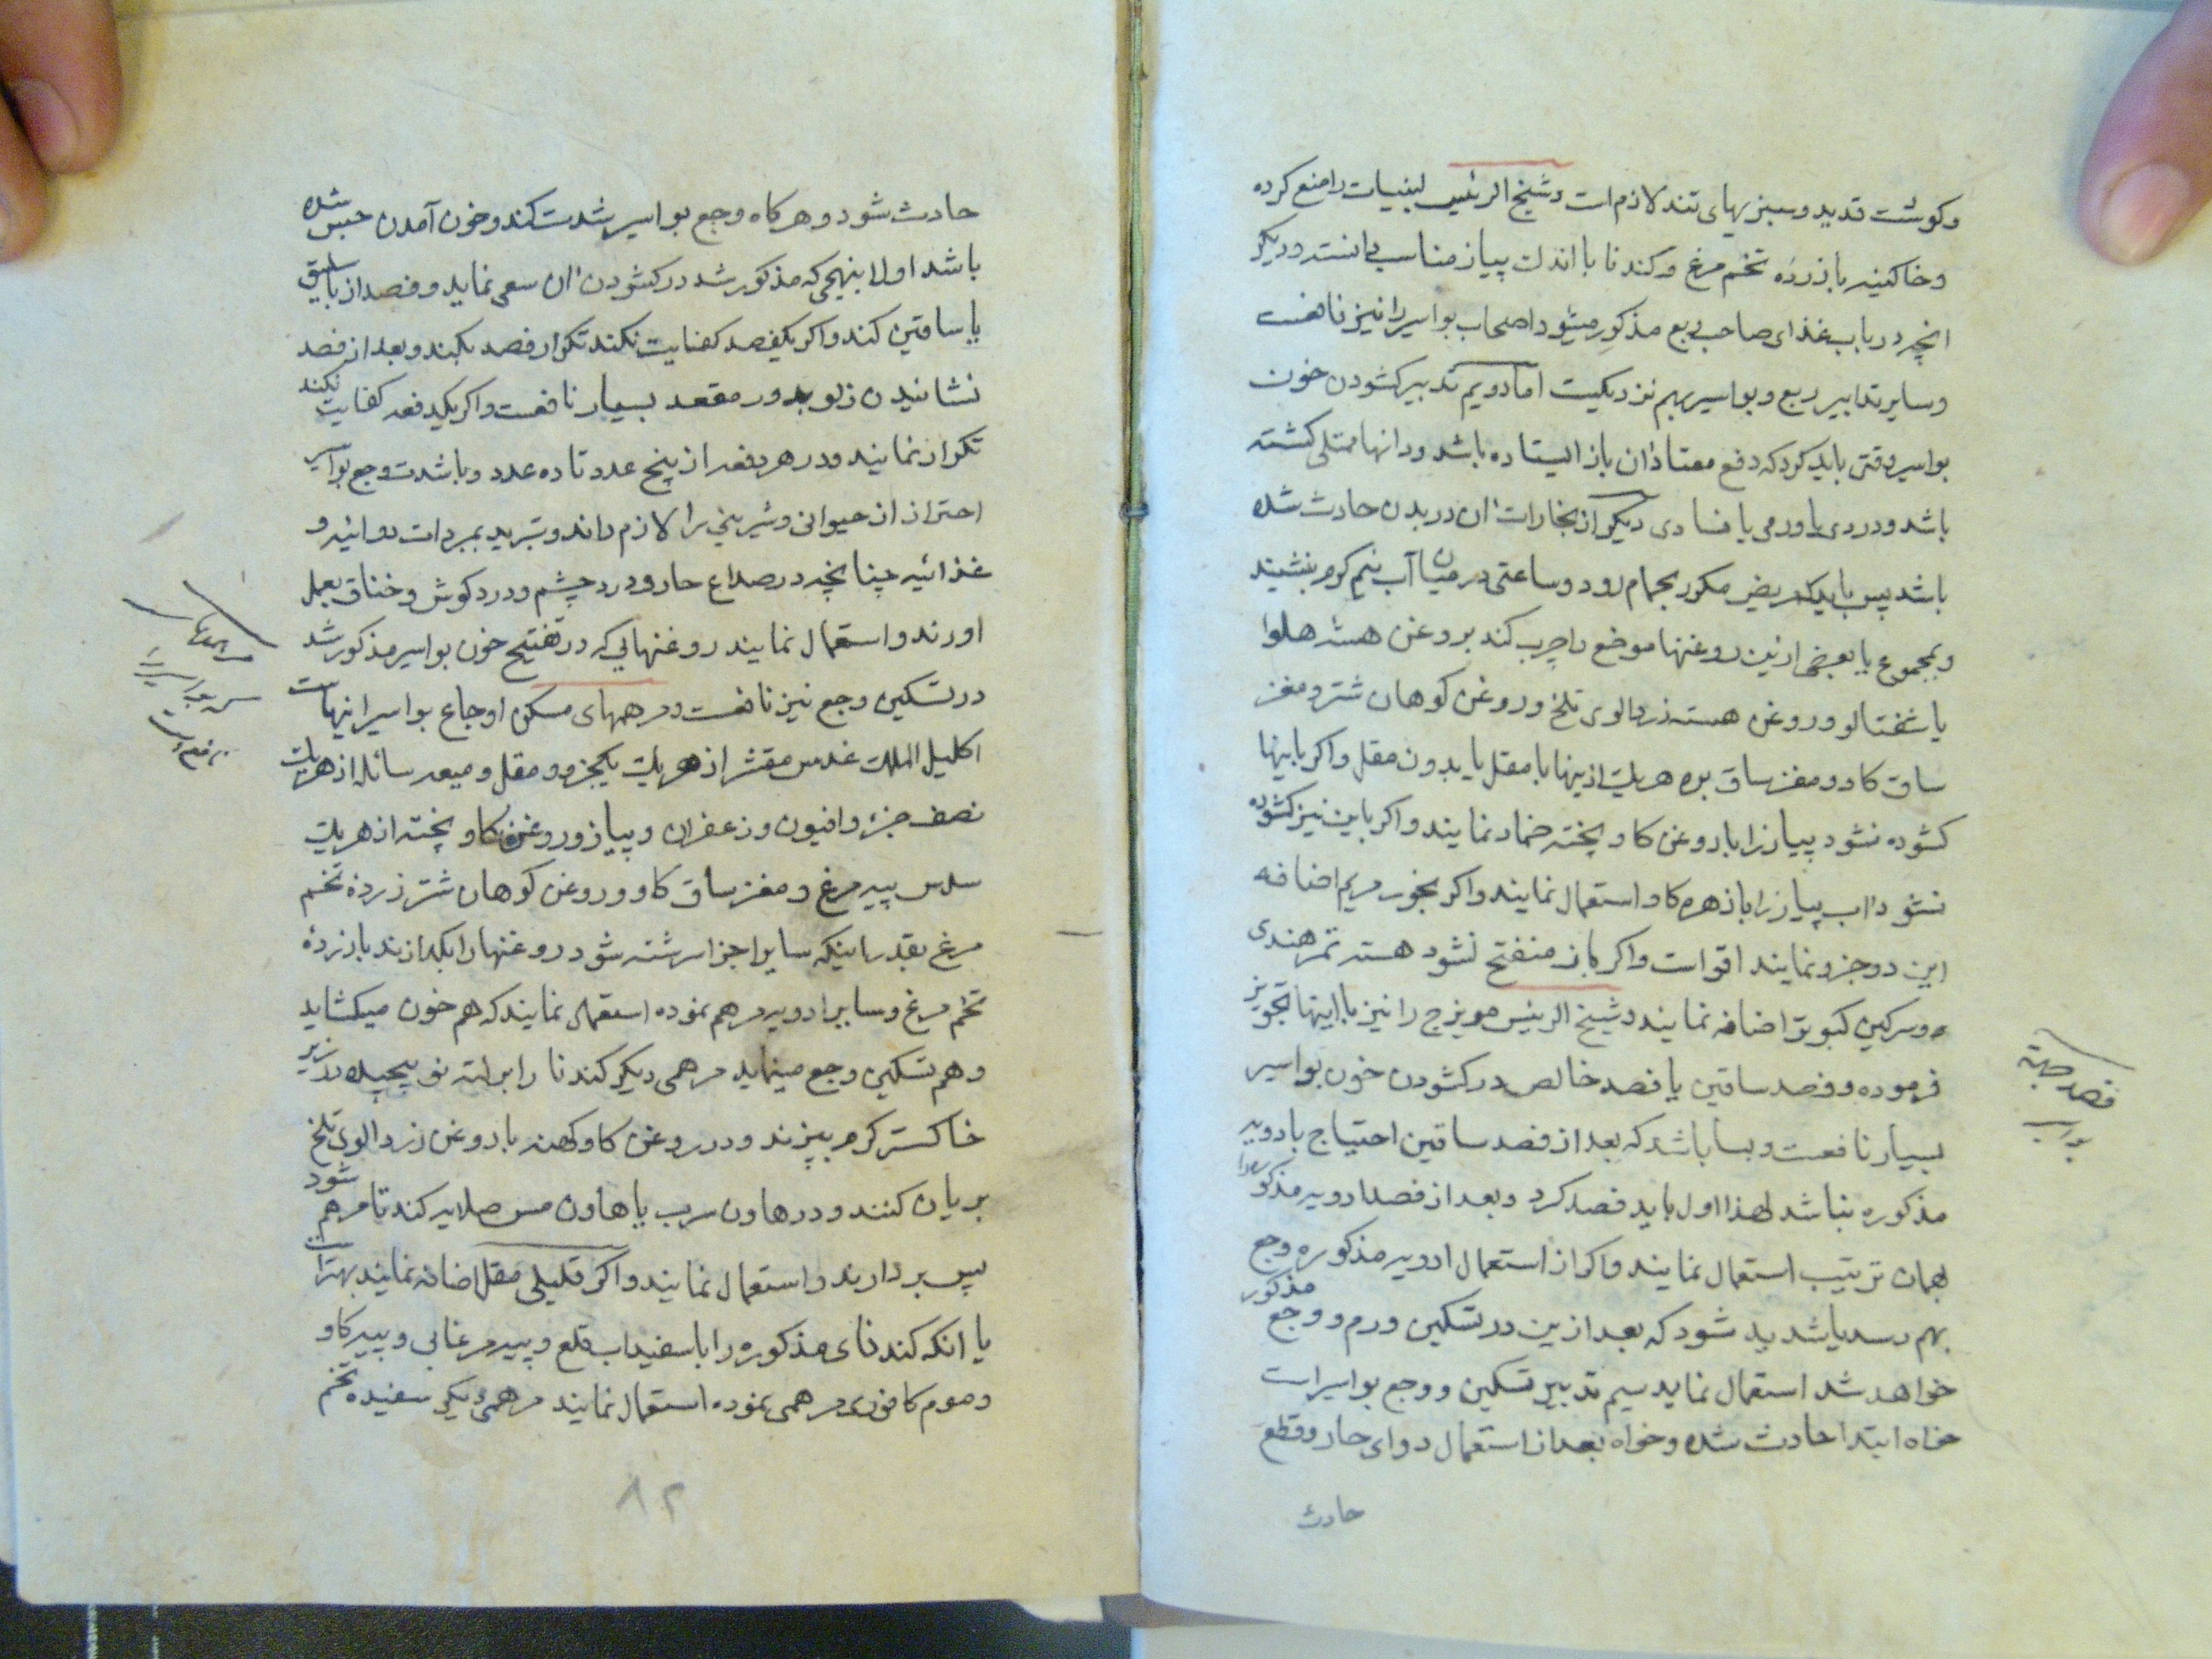 وکوشت قدید وسبزیهای تند لازم ات وشیخ الرئیس لبنیات را منع کرده
وخاکینه بازرده تخم مرغ وکندنا با اندک پیاز مناسب دانسته ودیکر
انچه در باب غذای صاحب ربع مذکور میشود اصحاب بواسیر را نیز نافعست
وسایر تدابیر ربع وبواسیر بهم نزدیکیت اما دویم تدبیر کشودن خون
بواسیر وقتی باید کرد که دفع معتاد ان باز ایستاده باشد ودانها ممتلی کشته
باشد ودردی یا ورمی یا فسادی دیکر از بخارات ان در بدن حادث شده
باشد پس باید که مریض مکرر بحمام رود وساعتی در میان آب نیم کرم بنشیند
وبمجموع یا بعضی ازین روغنها موضع را چرب کند بروغن هسته هلوا
یا شفتالو وروغن هسته زردالوی تلخ وروغن کوهان شتر ومغز
ساق کاو ومغز ساق بره هریک ازینها با مقل یا بدون مقل واکر باینها
کشوده نشود پیاز را با روغن کاو پخته ضماد نمایند واکر باین نیز کشوده
نشود اب پیاز را با زهره کاو استعمال نمایند واکر بخور مریم اضافه
این دو جزو نمایند اقواست واکر باز منفتح نشود هسته تمر هندی
وسرکین کبوتر اضافه نمایند وشیخ الرئیس مویزج را نیز با اینها تجویز
فرموده وفصد ساقین یا فصد خالص در کشودن خون بواسیر
بسیار نافعست وبسا باشد که بعد از فصد ساقین احتیاج بادویه
مذکوره نباشد لهذا اول باید فصد کرد وبعد از فصد ادویه مذکور را
بهمان ترتیب استعمال نمایند واکر از استعمال ادویه مذکوره وجع
بهم رسد یا شدید شود که بعد ازین در تسکین ورم ووجع مذکور
خواهد شد استعمال نماید سیم تدبیر تسکین ووجع بواسیر است
خواه ابتدا حادث شده وخواه بعد از استعمال دوای حار وقطع
حادث
فصد
حادث شود وهرکاه وجع بواسیر شدت کند وخون آمدن حبس شده
باشد اولا بنهجی که مذکور شد در کشودن ان سعی نماید وفصد از باسلیق
یا ساقین کند واکر یکفصد کفایت نکند تکرار فصد بکند وبعد از فصد
نشانیدن زلو بدور مقعد بسیار نافعست واکر یکدفعه کفایت نکند
تکرار نمایند ودر هر دفعه از پنج عدد تا ده عدد وبا شدت وجع بواسیر
احتراز از حیوانی وشیرینی را لازم داند وتبرید بمبردات دوائیه و
غذائیه چنانچه در صداع حار ودرد چشم ودرد کوش وخناق بعمل
اورند واستعمال نمایند روغنهایی که در تفتیح خون بواسیر مذکور شد
در تسکین وجع نیز نافعست ومرهمهای مسکن اوجاع بواسیر اینهاست
اکلیل الملک عدس مقشر از هریک یکجزو ومقل ومیعه سائله از هریک
نصف جزء وافیون وزعفران وپیاز وروغن کاو پخته از هریک
سدس پیه مرغ ومغز ساق کاو وروغن کوهان شتر زرده تخم
مرغ بقدریکه سایر اجزا سرشته شود روغنها را بکدازند با زرده
تخم مرغ وسایر ادویه مرهم نموده استعمال نمایند که هم خون میکشاید
وهم تسکین وجع مینماید مرهمی دیکر کندنا را برلته نو پیچیده در زیر
خاکستر کرم بپزند ودر روغن کاو کهنه با روغن زردالوی تلخ
بریان کنند ودر هاون سرب یا هاون مس صلایه کند تا مرهم شود
پس بردارند واستعمال نمایند واکر قلیلی مقل اضافه نمایند بهتر است
یا انکه کندنای مذکوره را با سفیداب قلع وپیه مرغابی وپیه کاو
وموم کافوری مرهمی نموده استعمال نمایند مرهمی دیکر سفیده تخم
۸۲